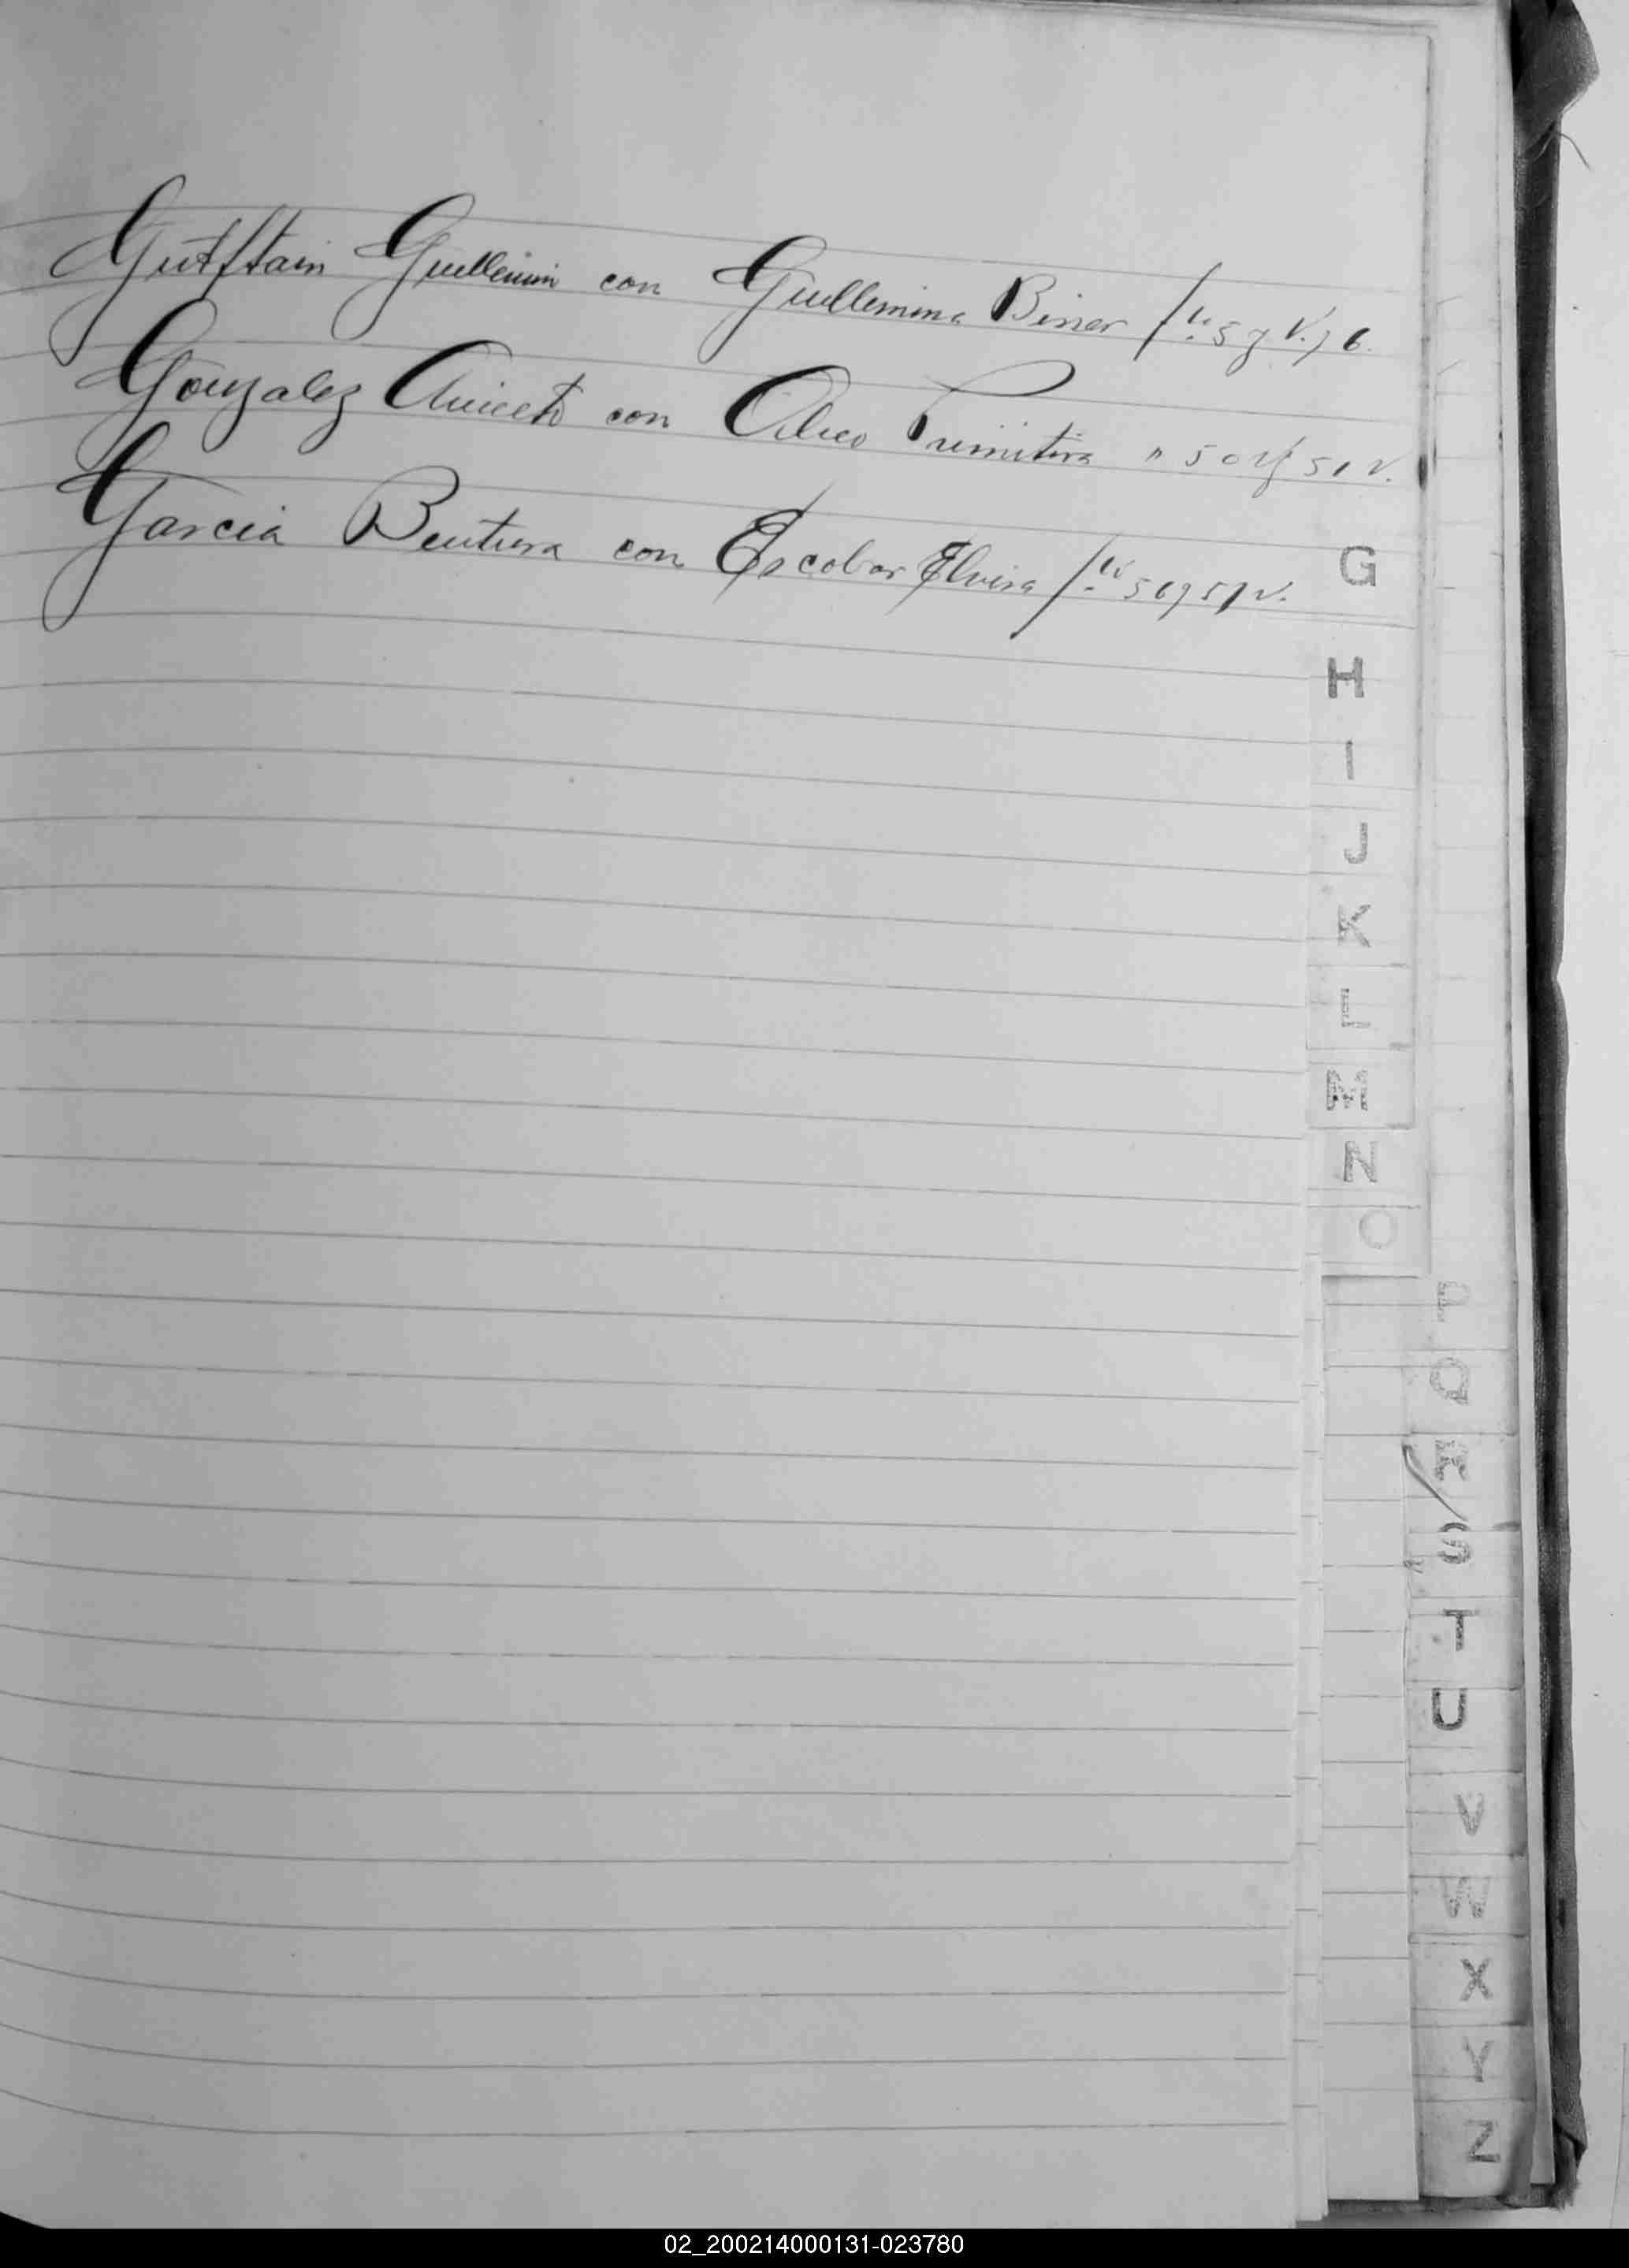 Gutftain Guillermin con Guillermina Biner
Gonzalez Aniceto con Primitiva
Garcia Bentura con Escobar Elvira
G
H
I
J
K
L
M
N
O
P
Q
R
S
T
U
V
W
X
Y
Z
02_200214000131-023780